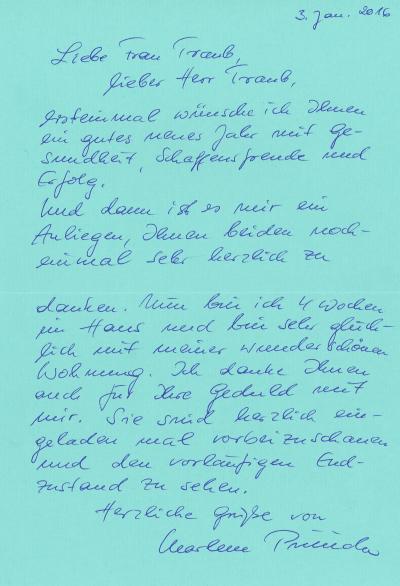 3. Jan. 2016
Liebe Frau Traub,
lieber Herr Traub,
ersteinmal wünsche ich Ihnen
ein gutes neues Jahr mit Ge-
sundheit, Schaffensfreude und
Erfolg.
Und dann ist es mir ein
Anliegen, Ihnen beiden noch-
einmal sehr herzlich zu
danken. Nun bin ich 4 Wochen
im Haus und bin sehr glück-
lich mit meiner wunderschönen
Wohnung. Ich danke Ihnen
auch für Ihre Geduld mit
mir. Sie sind herzlich ein-
geladen mal vorbeizuschauen
und den vorläufigen End-
zustand zu sehen.
Herzliche Grüße von
Marlene